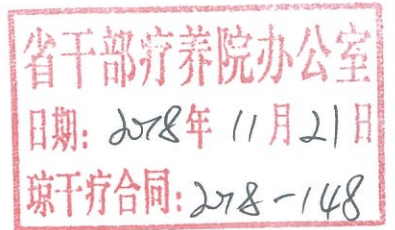 省干部疗养院办公室
日期: 2018年 11月21日
琼干疗合同: 2018-148